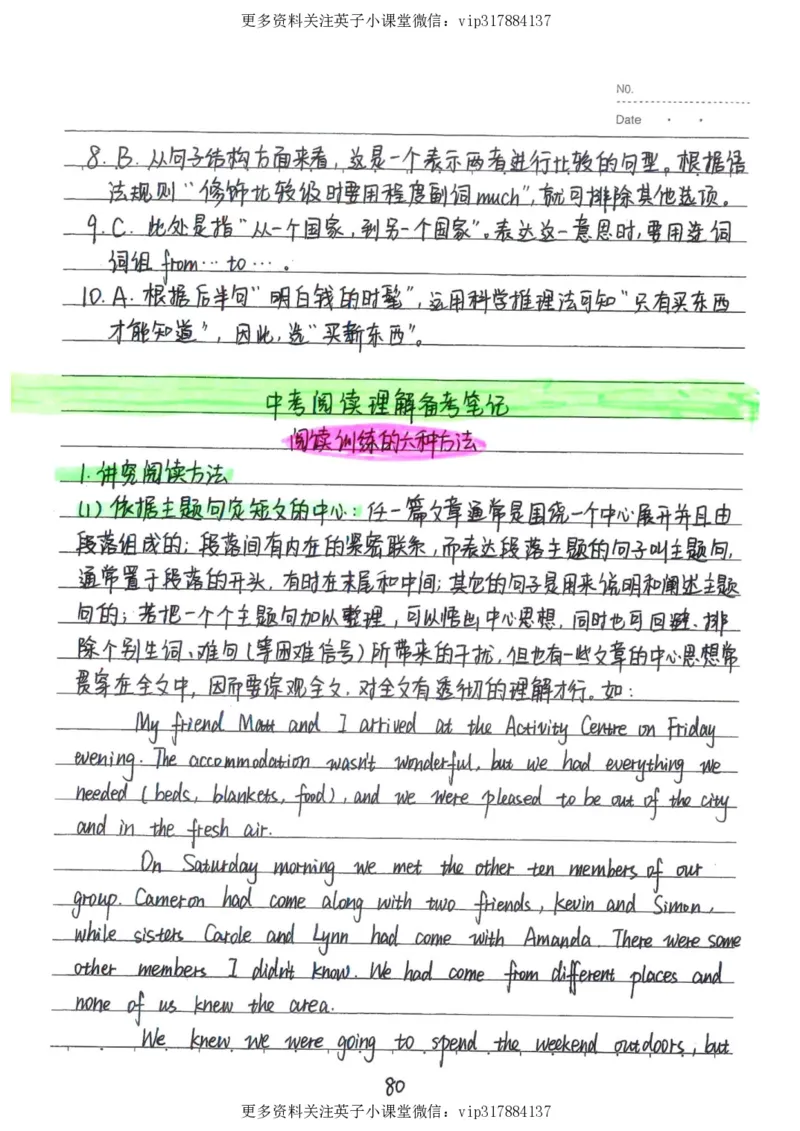 更多资料关注英子小课堂微信：vip317884137
N0.
Date
8. B. 从句子结构方面来看，这是一个表示两者进行比较的句型。根据语
法规则“修饰比较级时要用程度副词much”，就可排除其他选项。
9. C. 此处是指“从一个国家，到另一个国家”。表达这一意思时，要用连词
词组 from… to …。
10. A. 根据后半句“明白钱的时髦”，运用科学推理法可知“只有买东西
才能知道”，因此，选“买新东西”。
中考阅读理解备考笔记
阅读训练的六种方法
1. 讲究阅读方法
(1) 依据主题句定短文的中心：任一篇文章通常是围绕一个中心展开并且由
段落组成的；段落间有内在的紧密联系，而表达段落主题的句子叫主题句，
通常置于段落的开头，有时在末尾和中间；其它的句子是用来说明和阐述主题
句的；若把一个个主题句加以整理，可以悟出中心思想，同时也可回避、排
除个别生词、难句(等困难信号)所带来的干扰，但也有一些文章的中心思想常
贯穿在全文中，因而要综观全文，对全文有透彻的理解才行。如：
My friend Matt and I arrived at the Activity Centre on Friday
evening. The accommodation wasn't wonderful, but we had everything we
needed (beds, blankets, food), and we were pleased to be out of the city
and in the fresh air.
On Saturday morning we met the other ten members of our
group. Cameron had come along with two friends, Kevin and Simon,
while sisters Carole and Lynn had come with Amanda. There were some
other members I didn't know. We had come from different places and
none of us knew the area.
We knew we were going to spend the weekend outdoors, but
80
更多资料关注英子小课堂微信：vip317884137